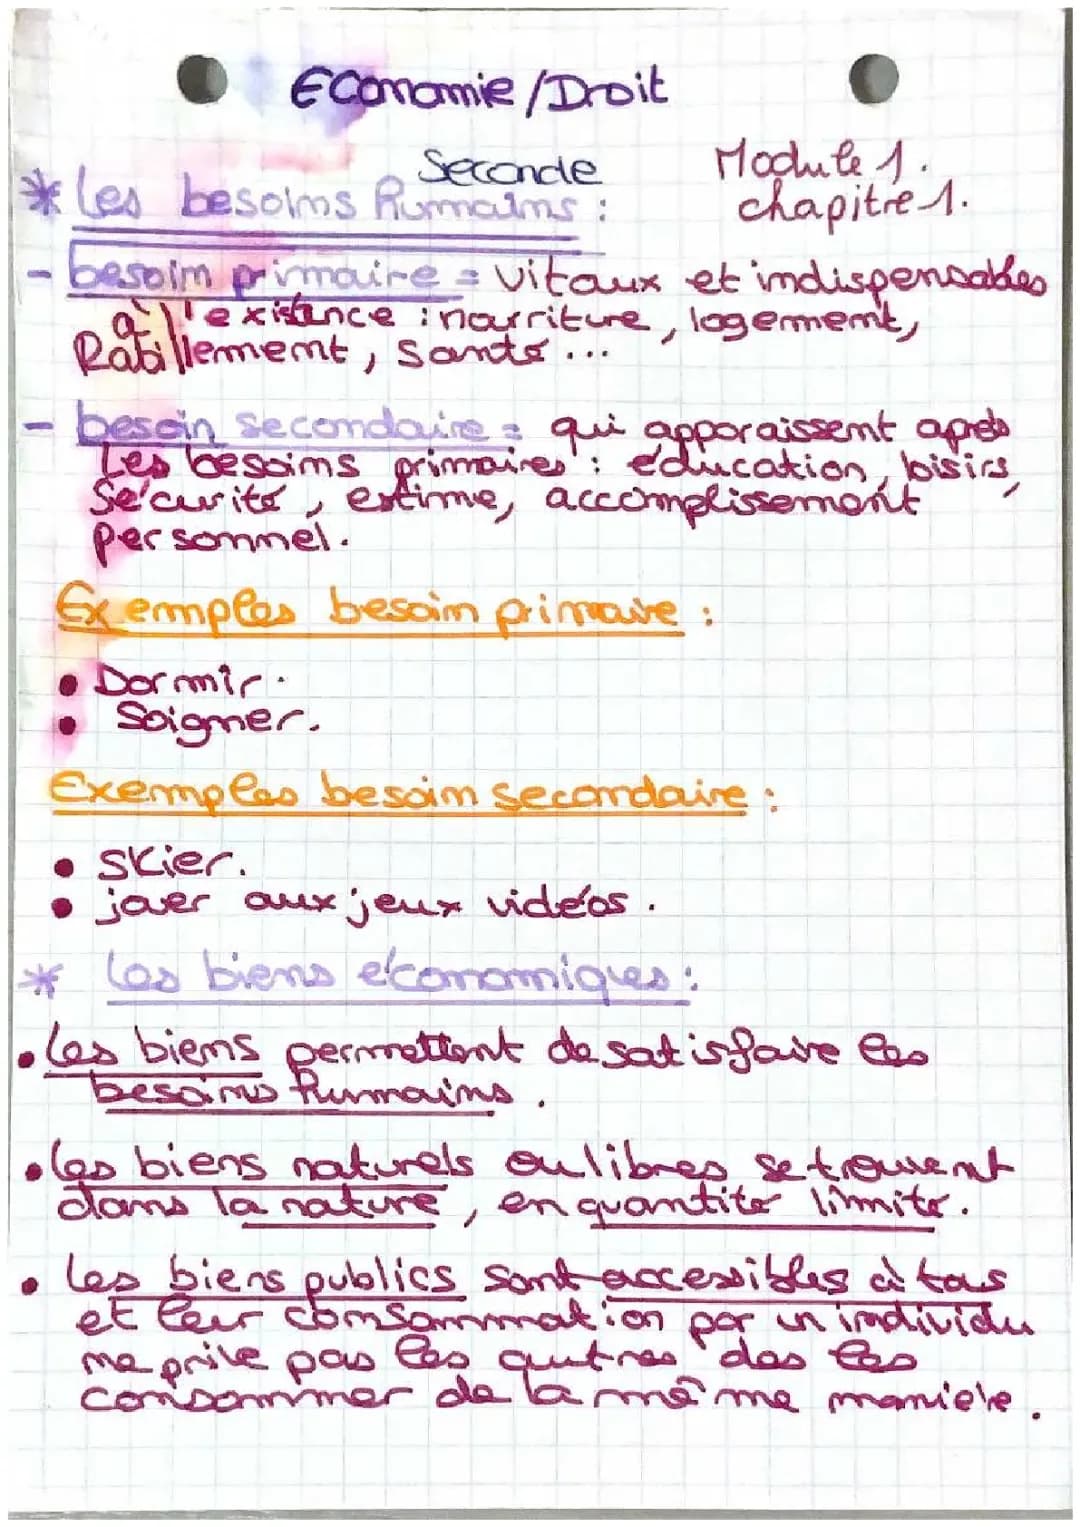 Economie/Droit
Seconde
Module 1.
chapitre 1.
* Les besoins humains :
- besoin primaire = vitaux et indispensables
à l'existence : nourriture, logement,
habillement, santé ...
- besoin secondaire = qui apparaissent après
Les besoins primaires : éducation, loisirs,
Sécurité, estime, accomplissement
personnel.
Exemples besoin primaire :
• Dormir.
• Soigner.
Exemples besoin secondaire :
• Skier.
• jouer aux jeux vidéos.
* Les biens économiques :
• Les biens permettent de satisfaire les
besoins humains.
• Les biens naturels ou libres se trouvent
dans la nature, en quantité limité.
• Les biens publics sont accessibles à tous
et leur consommation par un individu
ne prive pas les autres des les
consommer de la même manière.